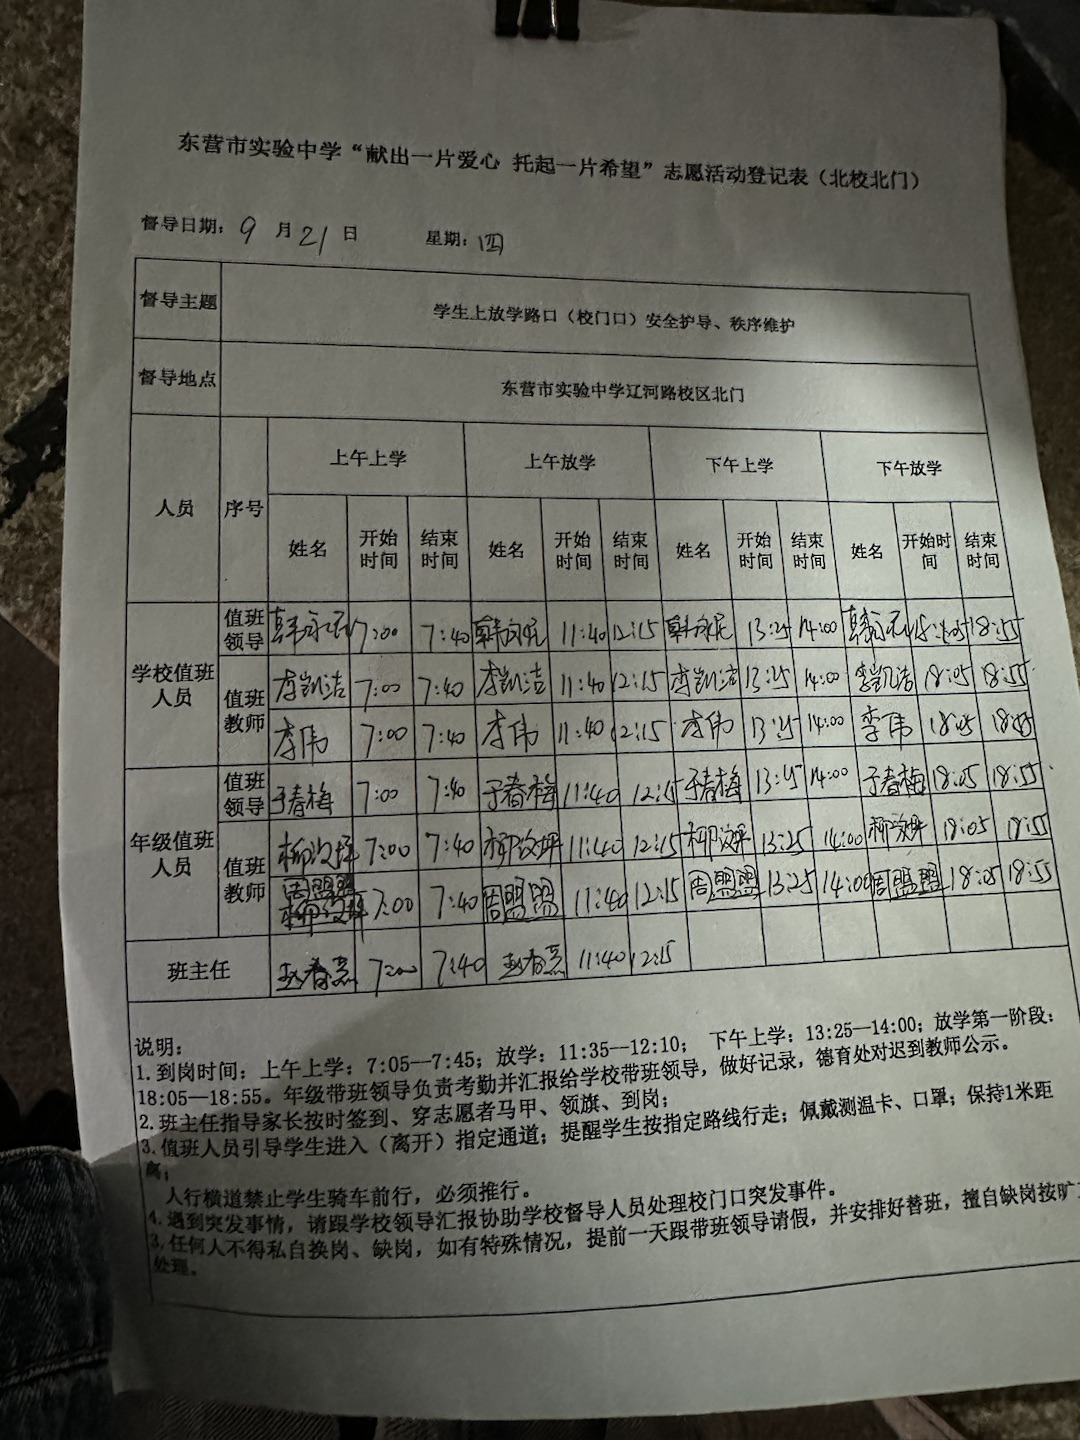 东营市实验中学“献出一片爱心 托起一片希望”志愿活动登记表（北校北门）
督导日期：9月21日 星期：四
督导主题 学生上放学路口（校门口）安全护导、秩序维护
督导地点 东营市实验中学辽河路校区北门
人员 序号 上午上学 上午放学 下午上学 下午放学
姓名 开始时间 结束时间 姓名 开始时间 结束时间 姓名 开始时间 结束时间 姓名 开始时间 结束时间
学校值班人员 值班领导 7:00 7:40 11:40 12:15 13:25 14:00 18:05 18:55
值班教师 李凯洁 7:00 7:40 李凯洁 11:40 12:15 李凯洁 13:25 14:00 李凯洁 18:05 18:55
李伟 7:00 7:40 李伟 11:40 12:15 李伟 13:25 14:00 李伟 18:05
年级值班人员 值班领导 于春梅 7:00 7:40 于春梅 11:40 12:15 于春梅 14:00 于春梅 18:05 18:55
值班教师 7:00 7:40 11:40 12:15 13:25 14:00 18:05 18:55
周盟盟 7:00 7:40 周盟盟 11:40 12:15 周盟盟 13:25 14:00 周盟盟 18:05 18:55
班主任 7:00 7:40 11:40 12:15
说明：
1.到岗时间：上午上学：7:05—7:45；放学：11:35—12:10； 下午上学：13:25—14:00；放学第一阶段：
18:05—18:55。年级带班领导负责考勤并汇报给学校带班领导，做好记录，德育处对迟到教师公示。
2.班主任指导家长按时签到、穿志愿者马甲、领旗、到岗；
3.值班人员引导学生进入（离开）指定通道；提醒学生按指定路线行走；佩戴测温卡、口罩；保持1米距
离；
人行横道禁止学生骑车前行，必须推行。
4.遇到突发事情，请跟学校领导汇报协助学校督导人员处理校门口突发事件。
3.任何人不得私自换岗、缺岗，如有特殊情况，提前一天跟带班领导请假，并安排好替班，擅自缺岗按旷
处理。